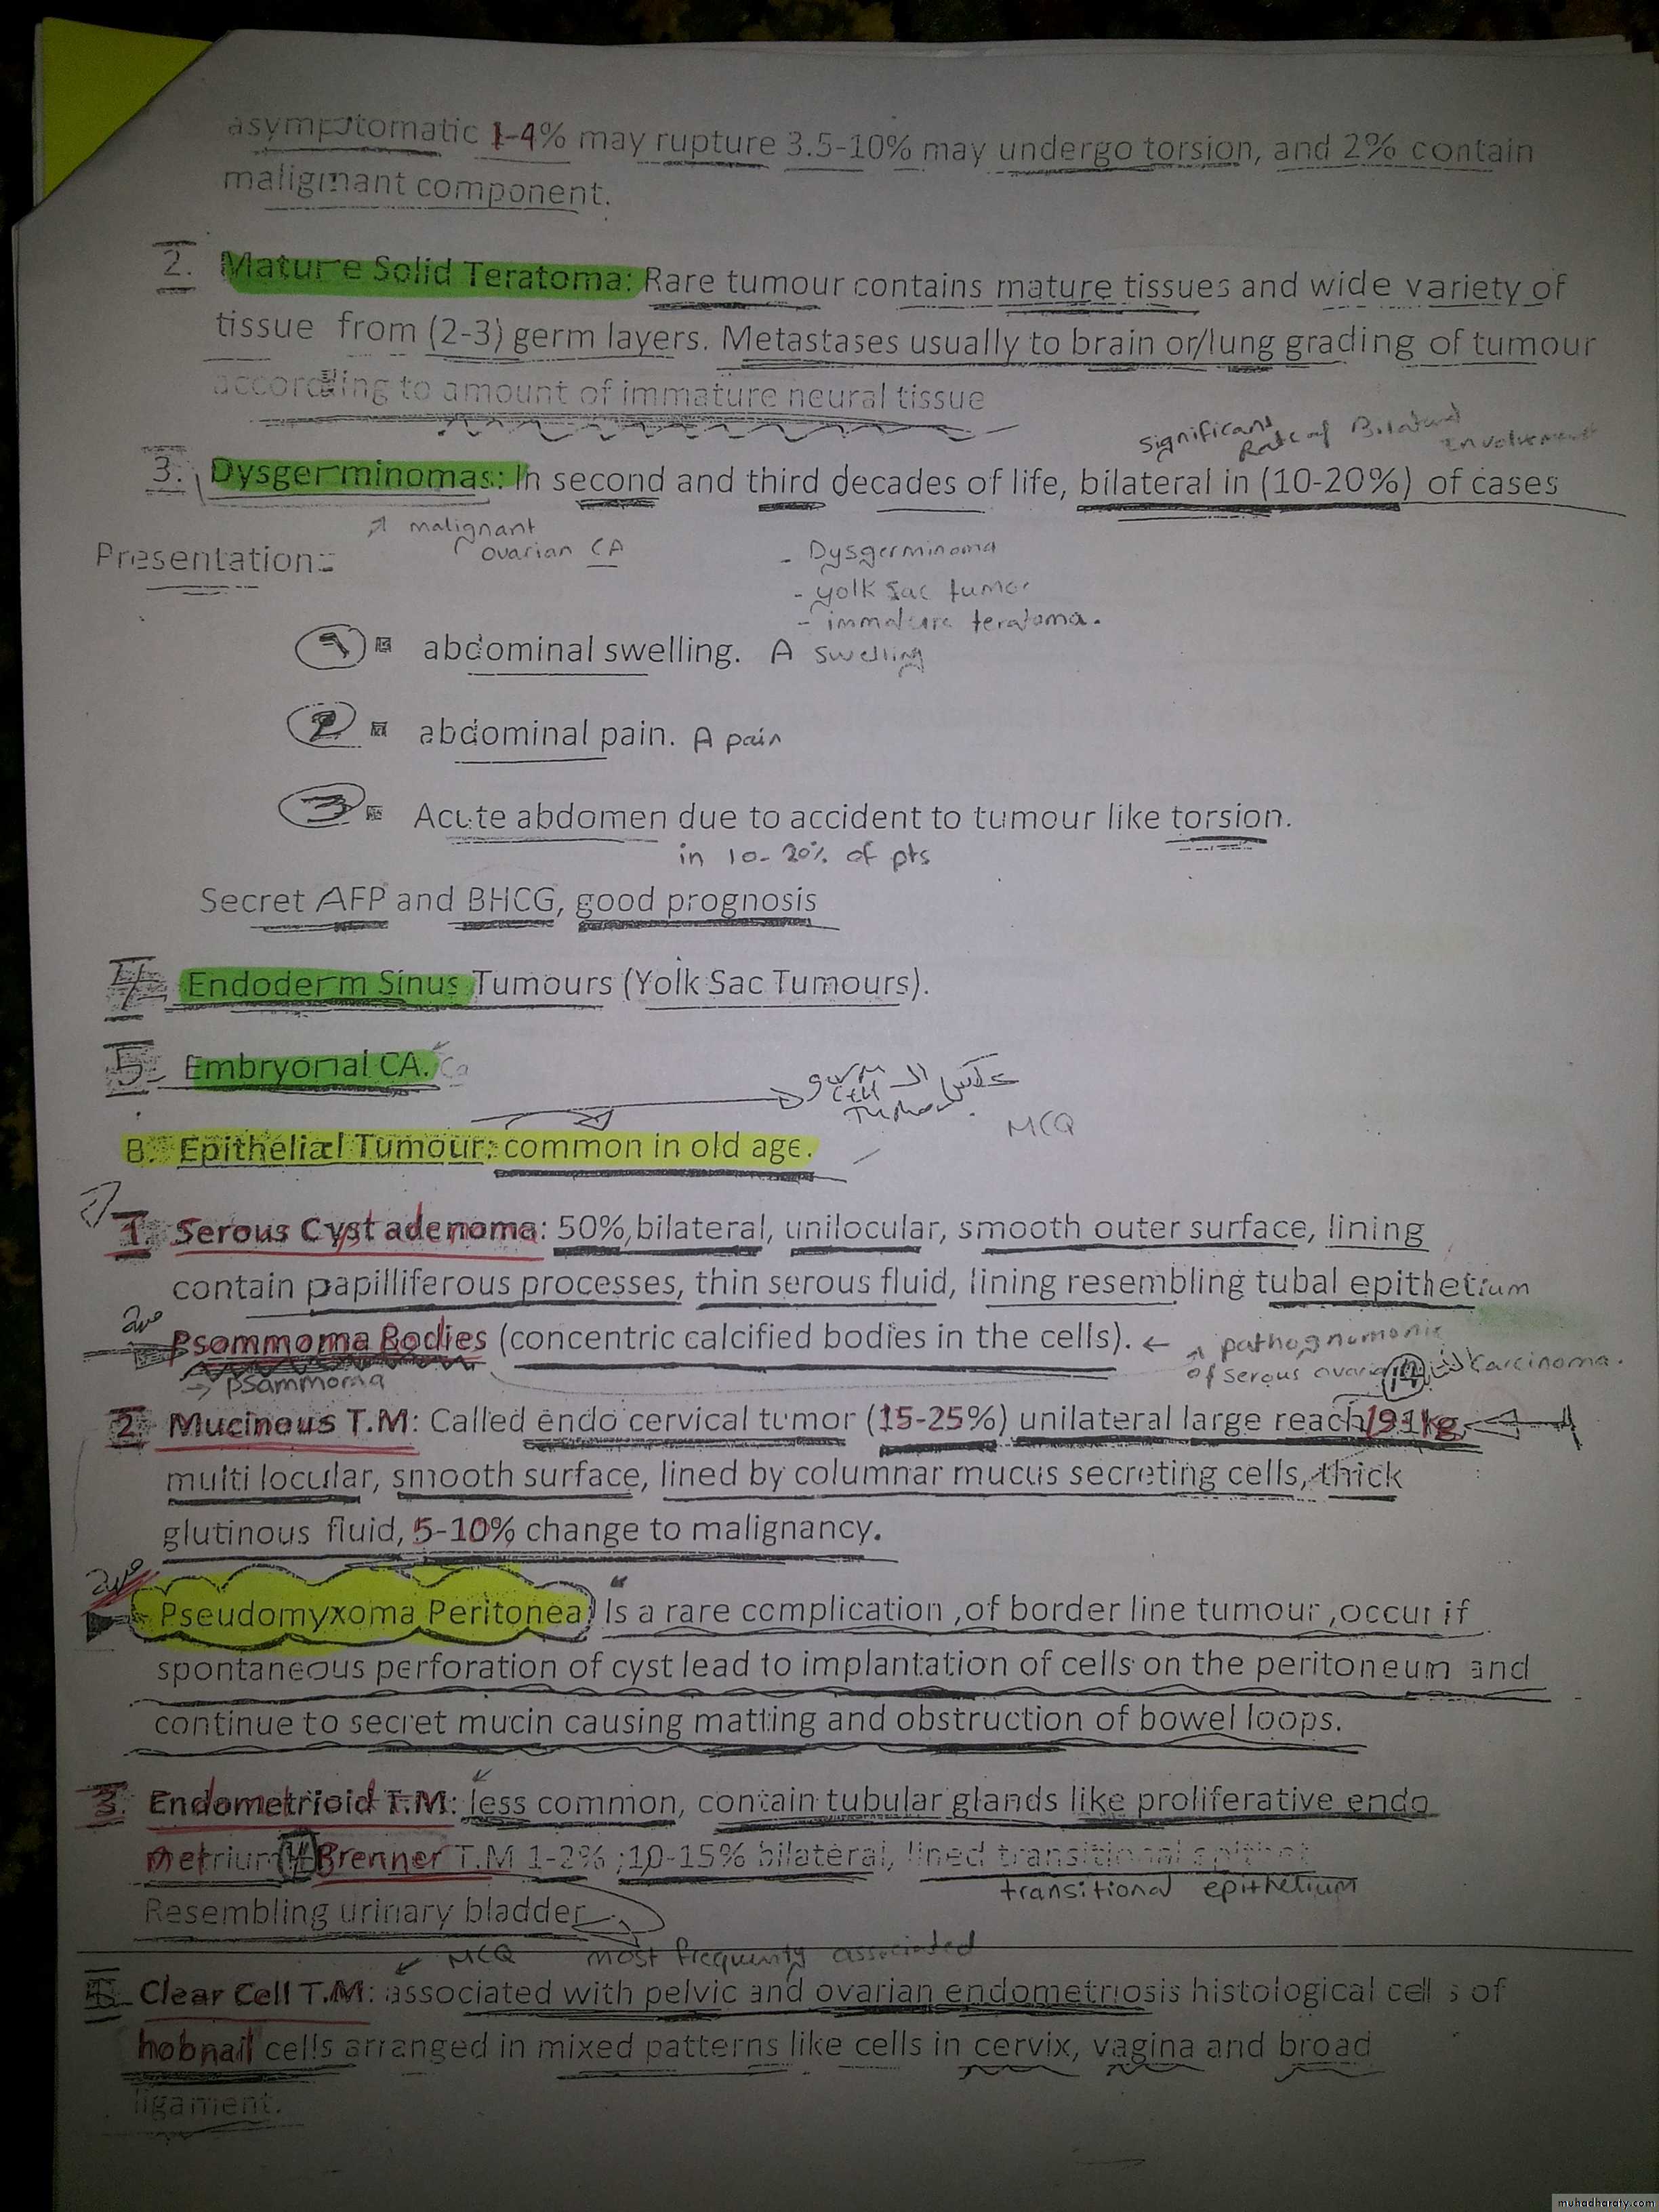 asymptomatic 1-4% may rupture 3.5-10% may undergo torsion, and 2% contain
malignant component.
2. Mature Solid Teratoma: Rare tumour contains mature tissues and wide variety of
tissue from (2-3) germ layers. Metastases usually to brain or/lung grading of tumour
according to amount of immature neural tissue
significant
Rate of Bilateral
Involvement
3. Dysgerminomas: In second and third decades of life, bilateral in (10-20%) of cases
malignant
ovarian CA
Presentation:-
- Dysgerminoma
- yolk sac tumor
- immature teratoma.
1 abdominal swelling. A swelling
2 abdominal pain. A pain
3 Acute abdomen due to accident to tumour like torsion.
in 10-20% of pts
Secret AFP and BHCG, good prognosis
4 Endoderm Sinus Tumours (Yolk Sac Tumours).
5. Embryonal CA. Ca
عكس الـ germ
cell
Tumor.
MCQ
B. Epithelial Tumour: common in old age.
1. Serous Cyst adenoma: 50%,bilateral, unilocular, smooth outer surface, lining
contain papilliferous processes, thin serous fluid, lining resembling tubal epithetium
Psommoma Bodies (concentric calcified bodies in the cells). ← pathognomonic
of serous ovarian carcinoma.
→ psammoma
2. Mucinous T.M: Called endo cervical tumor (15-25%) unilateral large reach kg,
multi locular, smooth surface, lined by columnar mucus secreting cells, thick
glutinous fluid, 5-10% change to malignancy.
Pseudomyxoma Peritonea Is a rare complication ,of border line tumour ,occur if
spontaneous perforation of cyst lead to implantation of cells on the peritoneum and
continue to secret mucin causing matting and obstruction of bowel loops.
3. Endometrioid T.M: less common, contain tubular glands like proliferative endo
metrium 4 Brenner T.M 1-2% ;10-15% bilateral, lined transitional epithet
transitional epithetium
Resembling urinary bladder
MCQ most frequently associated
Clear Cell T.M: associated with pelvic and ovarian endometriosis histological cell s of
hobnail cells arranged in mixed patterns like cells in cervix, vagina and broad
ligament.
muhadharaty.com